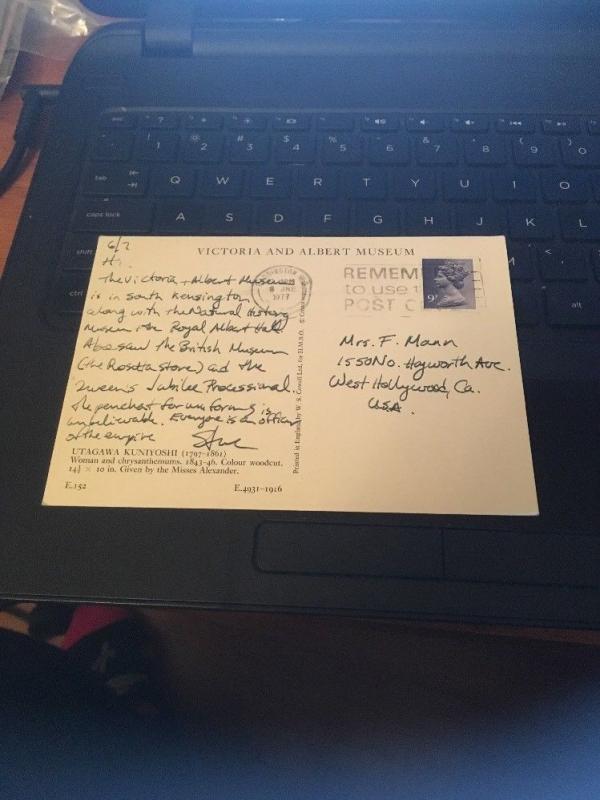 esc
?
1
2
3
4
5
6
7
8
9
0
!
#
$
%
&
(
)
tab
Q W E R T Y U I O
caps lock
A S D F G H J K L
shift
alt
VICTORIA AND ALBERT MUSEUM
6/7
Hi.
The Victoria + Albert Museum
is in South Kensington
along with the Natural History
Museum + the Royal Albert Hall.
Also saw the British Museum
(the Rosetta stone) and the
Queen's Jubilee Processional.
The penchant for uniforms is
unbelievable. Everyone is an officer
of the empire
Steve
UTAGAWA KUNIYOSHI (1797-1861)
Woman and chrysanthemums. 1843-46. Colour woodcut.
14¾ × 10 in. Given by the Misses Alexander.
E.152
E.4931-1916
Printed in England by W. S. Cowell Ltd, for H.M.S.O.
8 JNE
1977
REMEM
to use
POST C
9P
Mrs. F. Mann
1550 No. Hayworth Ave.
West Hollywood, Ca.
USA.